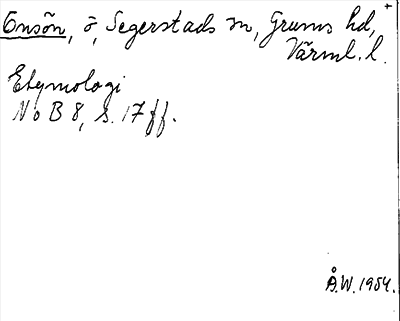 Onsön, ö, Segerstads sn, Grums hd,
Värml. l.
Etymologi
NoB 8, s. 17 ff.
Å.W. 1954.